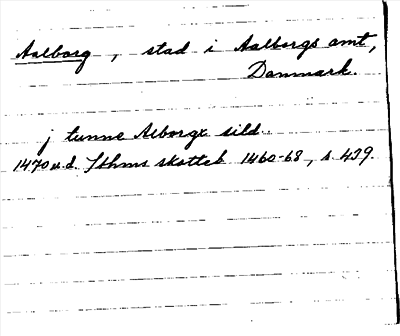 Aalborg, stad i Aalborgs amt,
Danmark.
j tunne Alborgx sild.
1470 u.d. Sthms skatteb. 1460-68, s. 439.